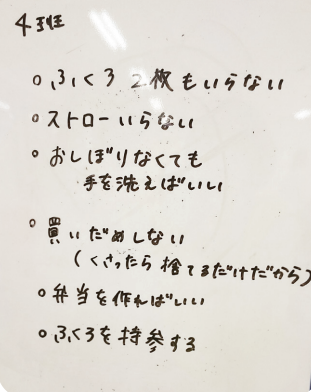 4班
○ ふくろ 2枚もいらない
○ ストローいらない
○ おしぼりなくても
手を洗えばいい
○ 買いだめしない
(くさったら捨てるだけだから)
○ 弁当を作ればいい
○ ふくろを持参する